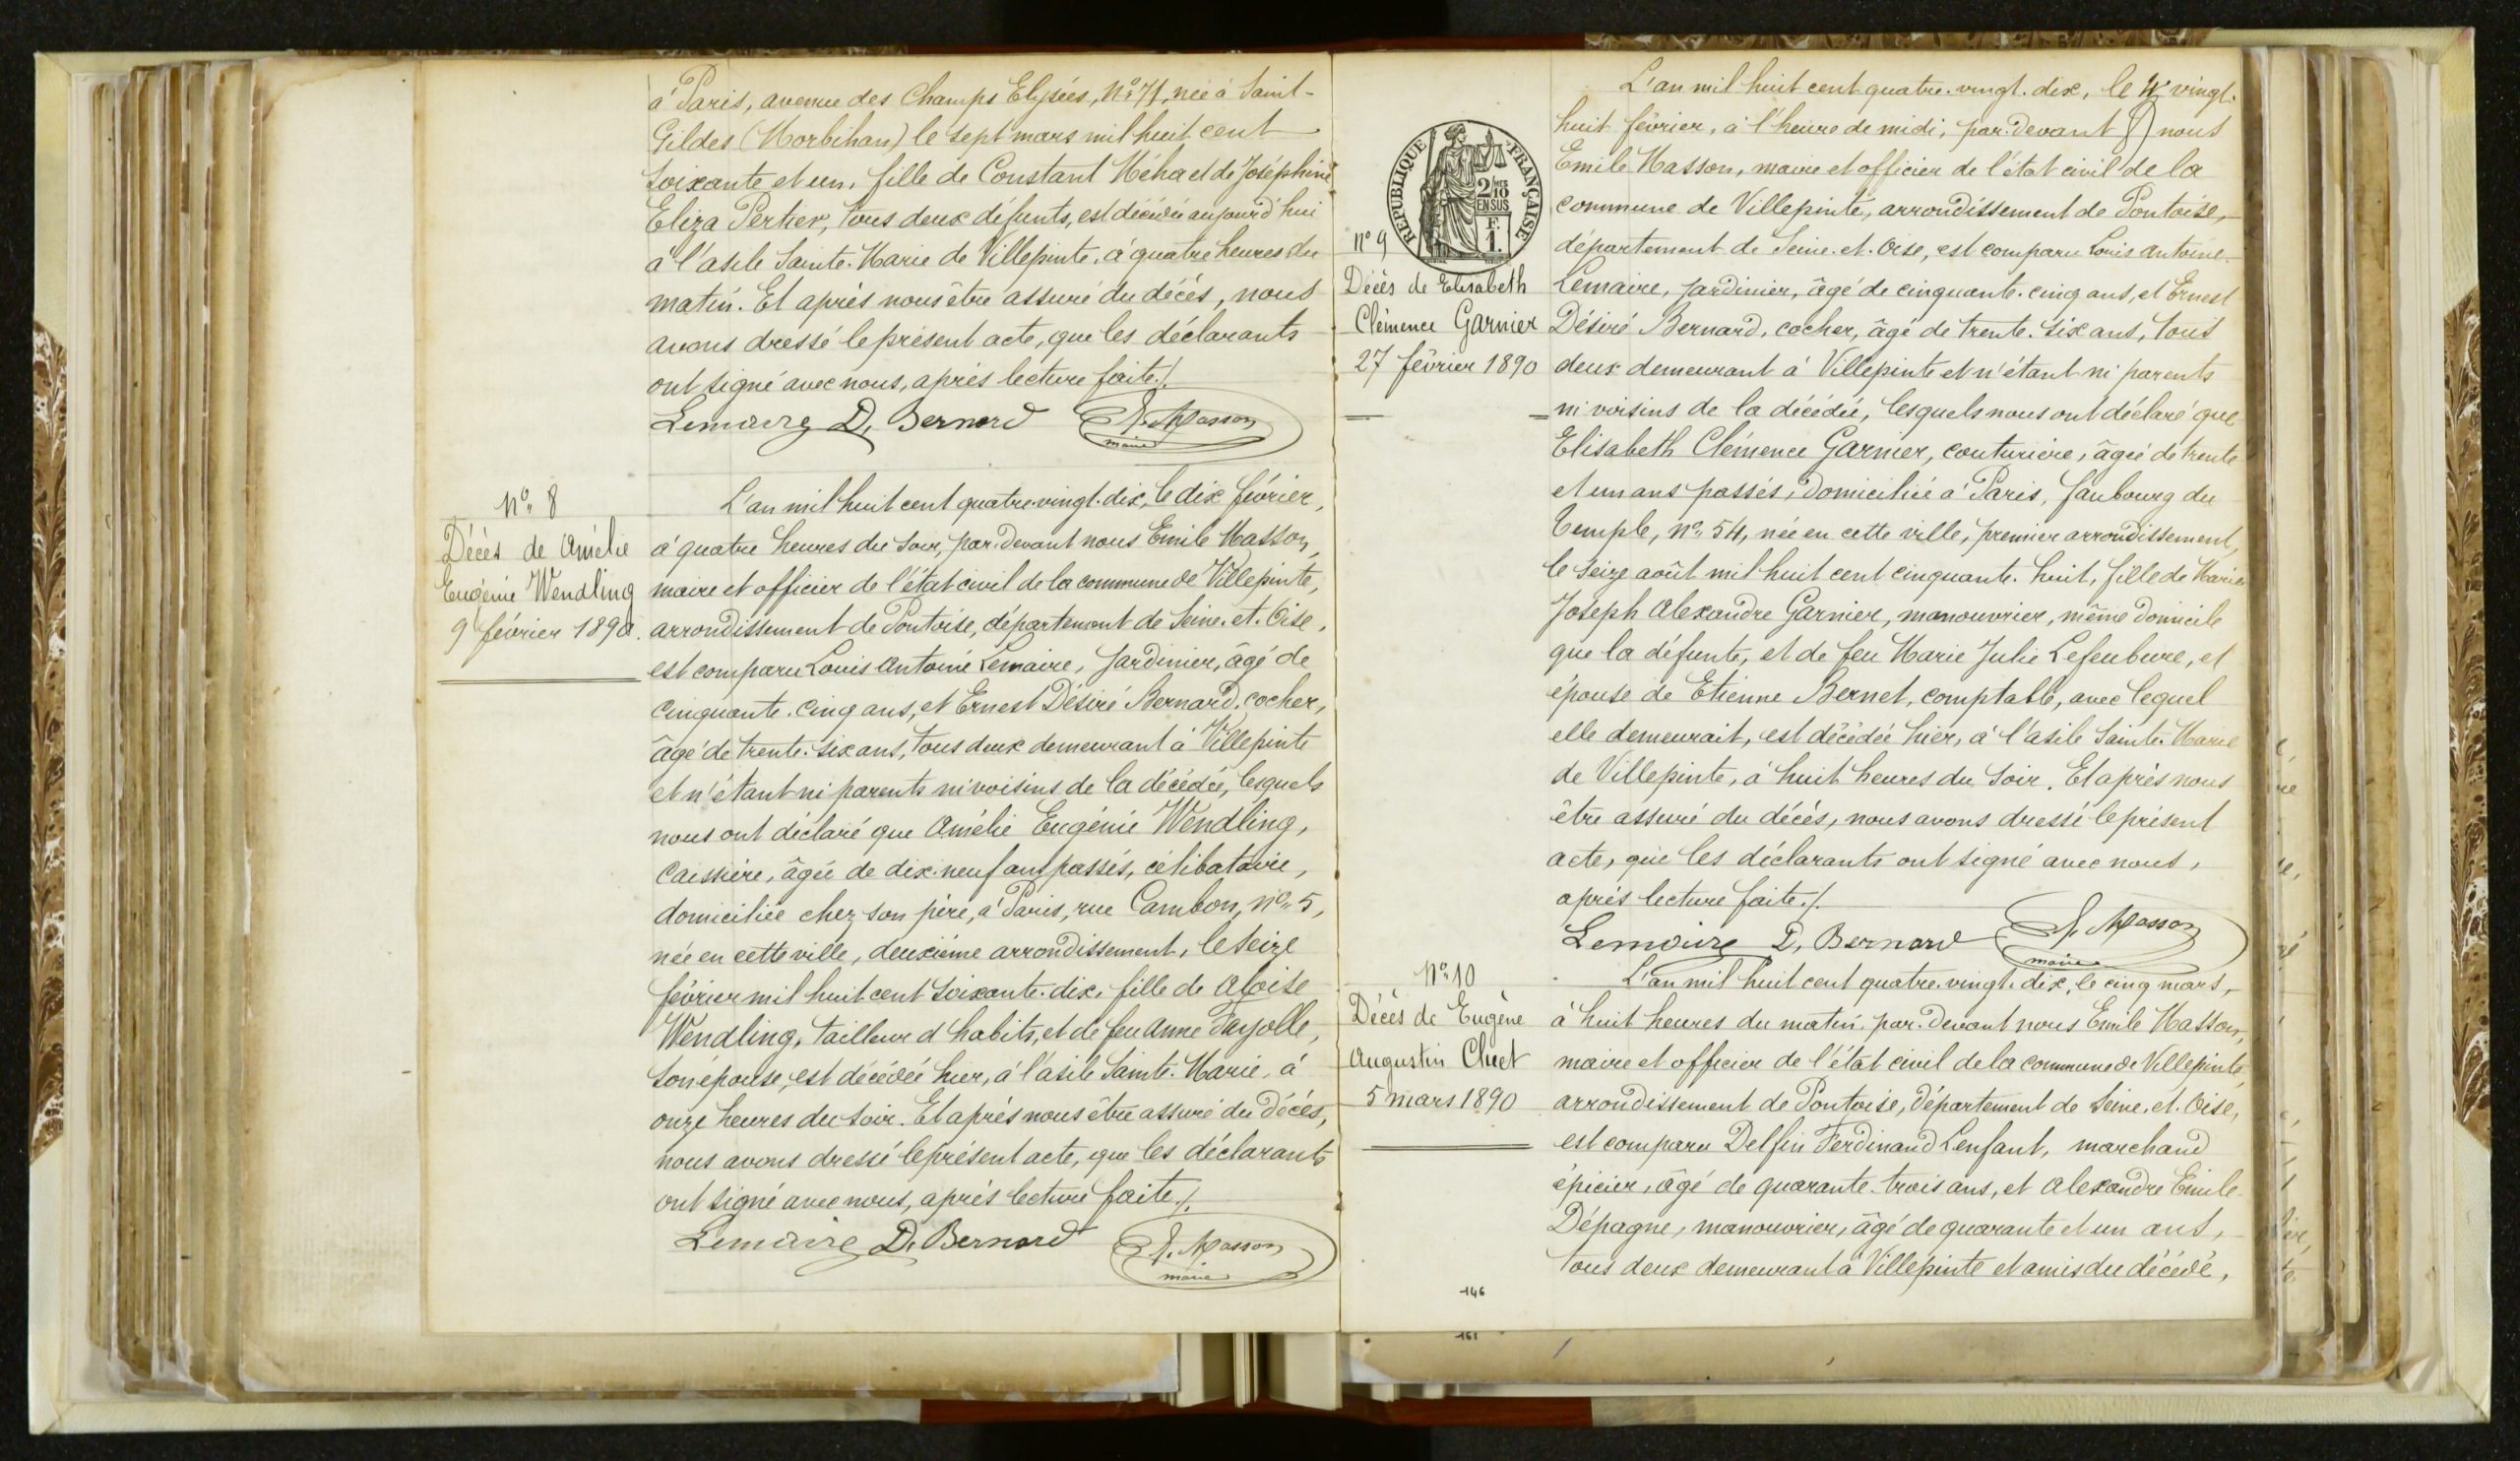 à Paris, avenue des Champs Elysées, N° 71, née à Saint-
Gildes (Morbihan) le sept mars mil huit cent
soixante et un, fille de Constant Méha et de Joséphine
Eliza Pertier, tous deux défunts, est décédée aujourd'hui
à l'asile Sainte-Marie de Villepinte, à quatre heures du
matin. Et après nous être assuré du décès, nous
avons dressé le présent acte, que les déclarants
ont signé avec nous, après lecture faite./.
Lemaire D. Bernard E. Masson
maire
N° 8
Décès de Amélie
Eugénie Wendling
9 février 1890.
L'an mil huit cent quatre-vingt-dix, le dix février,
à quatre heures du soir, par-devant nous Emile Masson,
maire et officier de l'état civil de la commune de Villepinte,
arrondissement de Pontoise, département de Seine-et-Oise,
est comparu Louis Antoine Lemaire, jardinier, âgé de
cinquante-cinq ans, et Ernest Désiré Bernard, cocher,
âgé de trente-six ans, tous deux demeurant à Villepinte
et n'étant ni parents ni voisins de la décédée, lesquels
nous ont déclaré que Amélie Eugénie Wendling,
caissière, âgée de dix-neuf ans passés, célibataire,
domiciliée chez son père, à Paris, rue Cambon, N° 5,
née en cette ville, deuxième arrondissement, le seize
février mil huit cent soixante-dix, fille de Aloise
Wendling, tailleur d'habits, et de feu Anne Fayolle,
son épouse, est décédée hier, à l'asile Sainte-Marie, à
onze heures du soir. Et après nous être assuré du décès,
nous avons dressé le présent acte, que les déclarants
ont signé avec nous, après lecture faite./.
Lemaire D. Bernard E. Masson
maire
RÉPUBLIQUE FRANÇAISE
2/10 EN SUS
F. 1.
N° 9
Décès de Elisabeth
Clémence Garnier
27 février 1890
L'an mil huit cent quatre-vingt-dix, le vingt-
huit février, à l'heure de midi, par-devant nous
Emile Masson, maire et officier de l'état civil de la
commune de Villepinte, arrondissement de Pontoise,
département de Seine-et-Oise, est comparu Louis Antoine
Lemaire, jardinier, âgé de cinquante-cinq ans, et Ernest
Désiré Bernard, cocher, âgé de trente-six ans, tous
deux demeurant à Villepinte et n'étant ni parents
ni voisins de la décédée, lesquels nous ont déclaré que
Elisabeth Clémence Garnier, couturière, âgée de trente
et un ans passés, domiciliée à Paris, faubourg du
Temple, N° 54, née en cette ville, premier arrondissement,
le seize août mil huit cent cinquante-huit, fille de Marie
Joseph Alexandre Garnier, manouvrier, même domicile
que la défunte, et de feu Marie Julie Lefeubure, et
épouse de Etienne Bernet, comptable, avec lequel
elle demeurait, est décédée hier, à l'asile Sainte-Marie
de Villepinte, à huit heures du soir. Et après nous
être assuré du décès, nous avons dressé le présent
acte, que les déclarants ont signé avec nous,
après lecture faite./.
Lemaire D. Bernard E. Masson
maire
N° 10
Décès de Eugène
Augustin Cluet
5 mars 1890
L'an mil huit cent quatre-vingt-dix, le cinq mars,
à huit heures du matin, par-devant nous Emile Masson,
maire et officier de l'état civil de la commune de Villepinte,
arrondissement de Pontoise, département de Seine-et-Oise,
est comparu Delfin Ferdinand Lenfant, marchand
épicier, âgé de quarante-trois ans, et Alexandre Emile
Dépagne, manouvrier, âgé de quarante et un ans,
tous deux demeurant à Villepinte et amis du décédé,
146
161